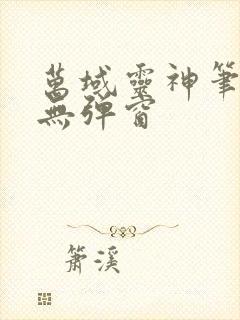 萬域靈神筆
無彈窗
簫溪